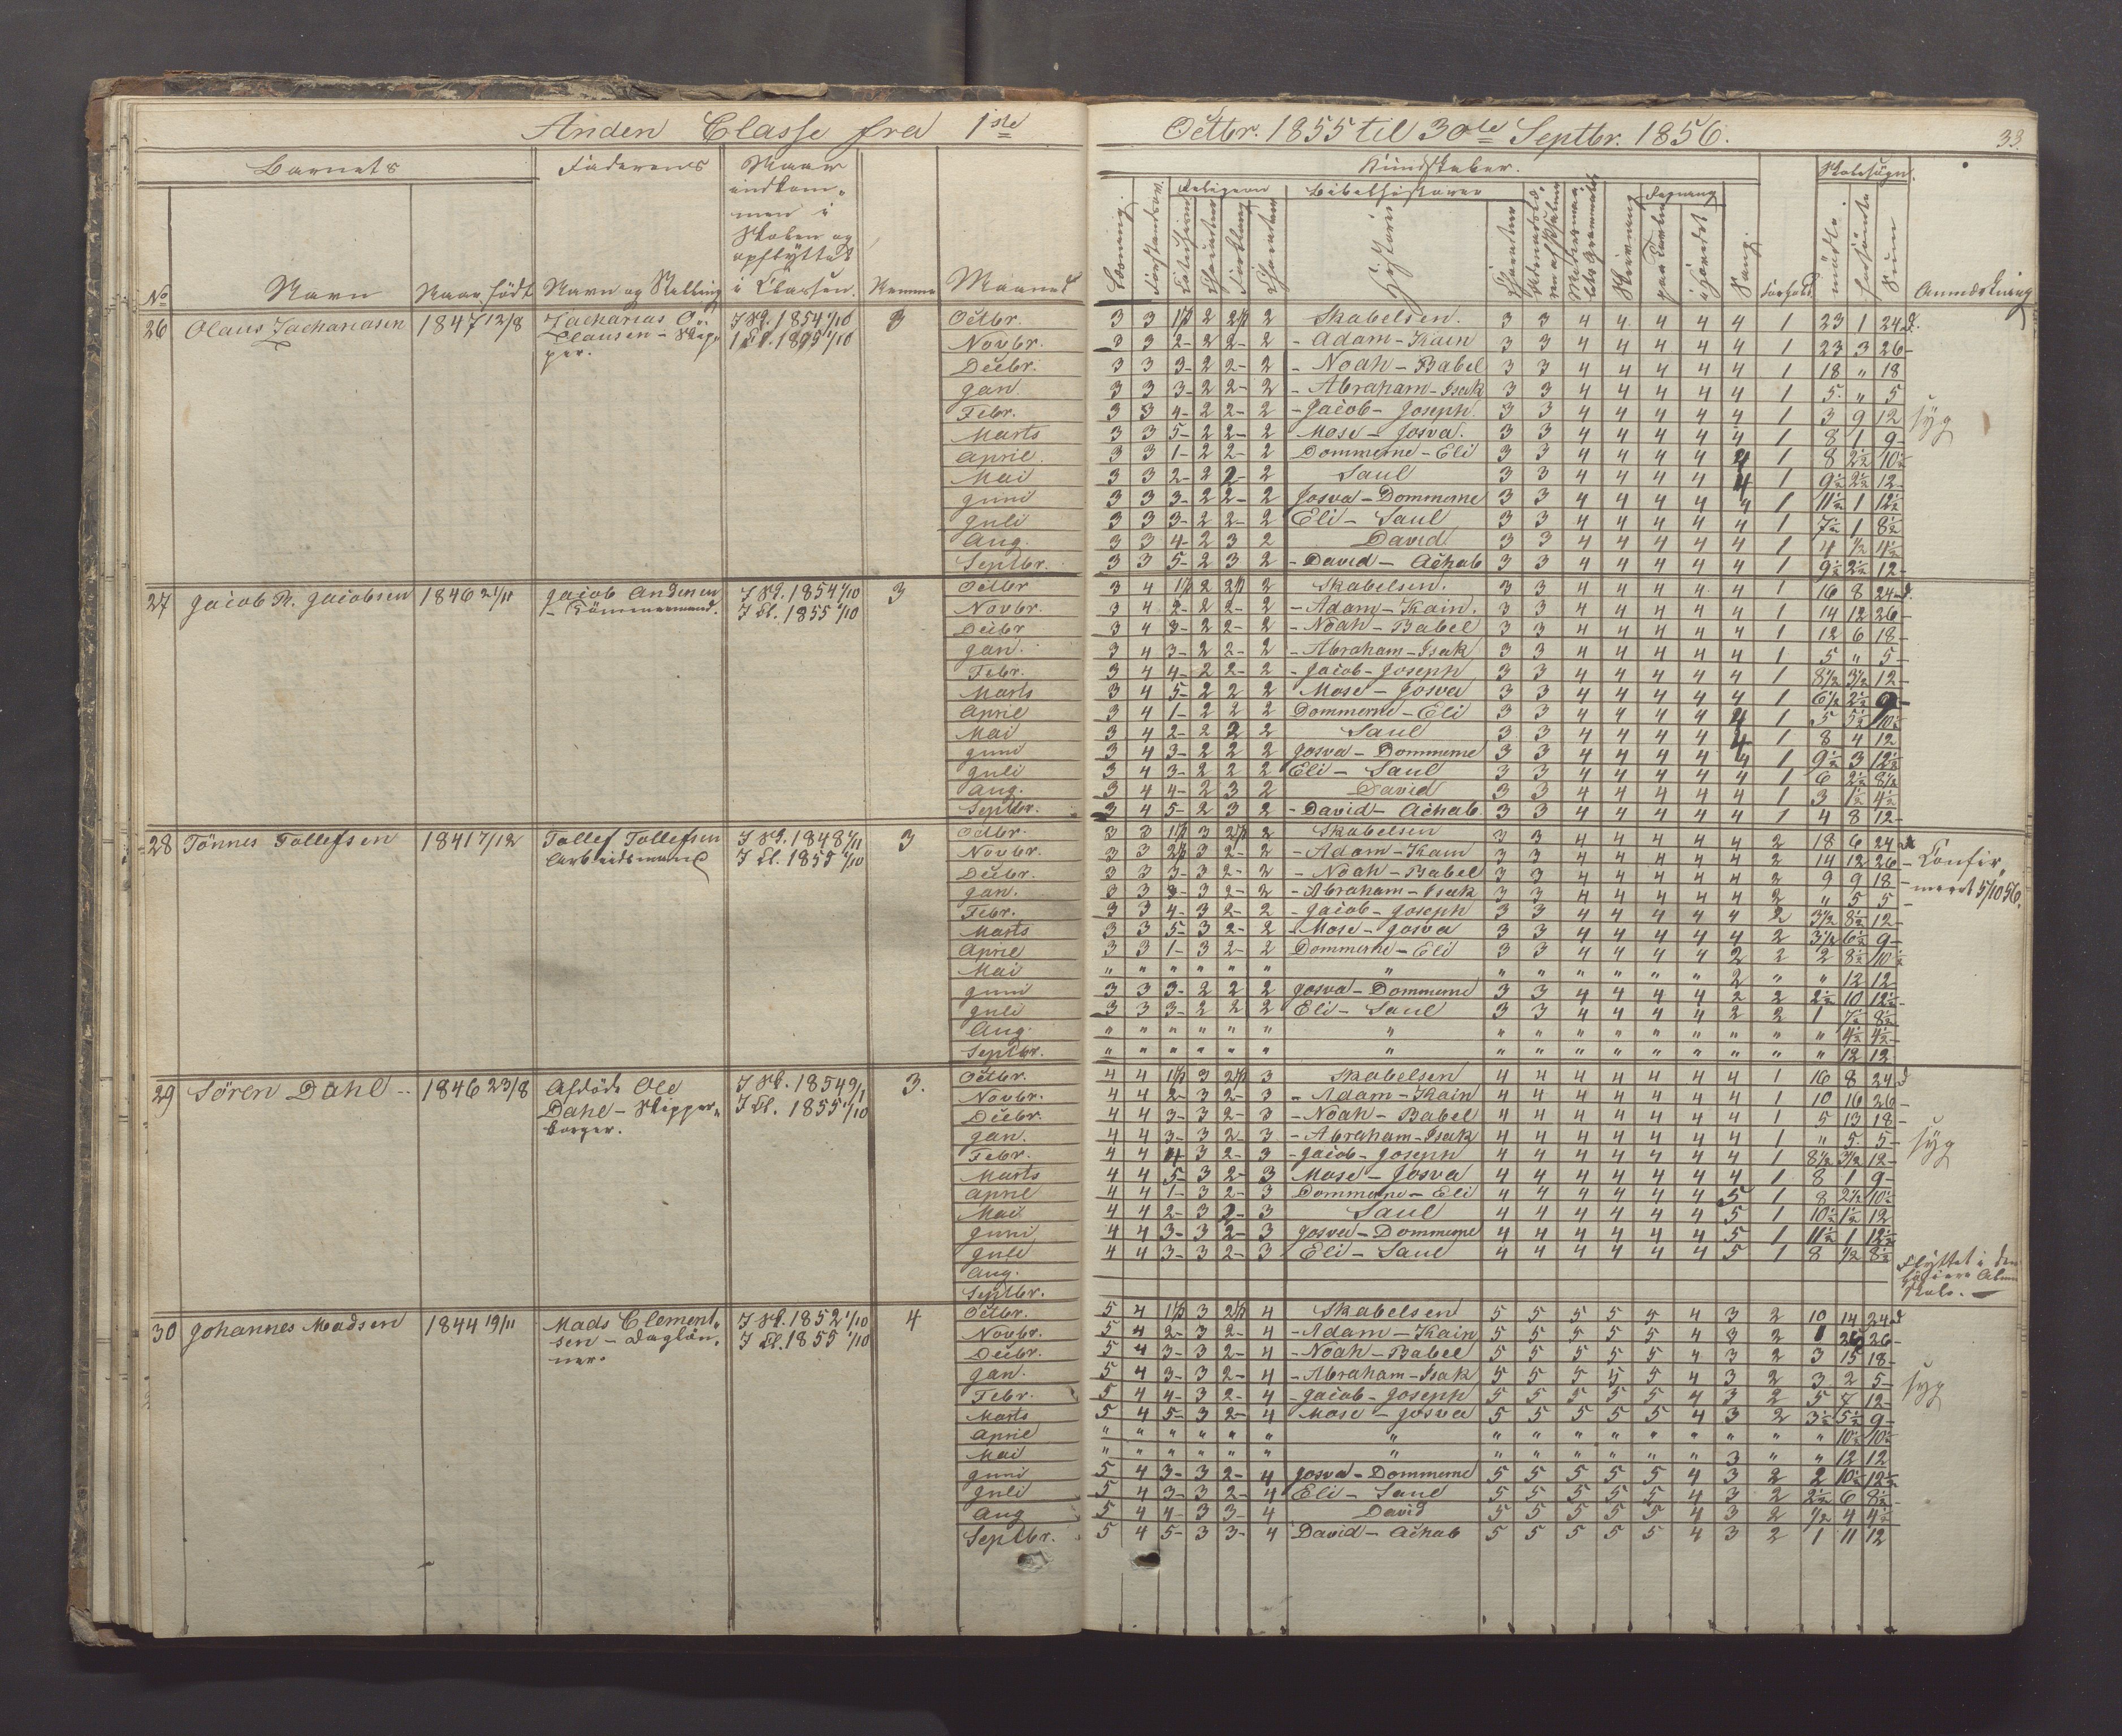 Anden Classe fra 1ste Octbr. 1855 til 30te Septbr. 1856.
33.
Barnets
Faderens
Naar indkom-
men i
Skolen og
opflyttet
i Classen.
No
Navn
Naar født
Navn og Stilling
Maaned
Kundskaber.
Religion
Bibelhistorie
Historie
Regning
Sang.
Forhold
Skolesøgn.
mødte
forsømte
Sum
Anmærkning
26 Olaus Zachariasen 1847 12/8 Zacharias O.
Clausen - Skip-
per.
I Sk. 1854 1/10
I Cl. 1855 1/10
3
Octbr. 3 3 2 2 Skabelsen. 3 3 4 4 4 4 4 1 23 1 24 d.
Novbr. 3 3 2- 2 2- 2 - Adam - Kain 3 3 4 4 4 4 4 1 23 3 26-
Decbr. 3 3 3- 2 2- 2 - Noah - Babel 3 3 4 4 4 4 4 1 18 " 18
Jan. 3 3 3- 2 2- 2 - Abraham - Isak 3 3 4 4 4 4 4 1 5. " 5
Febr. 3 3 4- 2 2- 2 - Jacob - Joseph. 3 3 4 4 4 4 4 1 3 9 12 syg
Marts 3 3 5- 2 2- 2 Mose - Josva. 3 3 4 4 4 4 4 1 8 1 9-
April. 3 3 1- 2 2- 2 Dommerne - Eli 3 3 4 4 4 4 4 1 8 2½ 10½
Mai 3 3 2- 2 2- 2 Saul 3 3 4 4 4 4 4 1 9½ 2½ 12-
Juni 3 3 3- 2 2- 2 Josva - Dommerne 3 3 4 4 4 4 4 1 11½ 1 12½
Juli 3 3 3- 2 2- 2 Eli - Saul 3 3 4 4 4 4 4 1 7½ 1 8½
Aug. 3 3 4- 2 3 2 David 3 3 4 4 4 4 4 1 4 ½ 4½
Septbr. 3 3 5- 2 3 2 - David - Achab 3 3 4 4 4 4 4 1 9½ 2½ 12-
27 Jacob P. Jacobsen 1846 21/11 Jacob Andersen
- Tømmermand.
I Sk. 1854 1/10
I Cl. 1855 1/10
3
Octbr 3 4 2 2 Skabelsen. 3 3 4 4 4 4 4 1 16 8 24 d.
Novbr. 3 4 2- 2 2- 2 - Adam - Kain. 3 3 4 4 4 4 4 1 14 12 26-
Decbr 3 4 3- 2 2- 2 - Noah - Babel 3 3 4 4 4 4 4 1 12 6 18-
Jan. 3 4 3- 2 2- 2 - Abraham - Isak 3 3 4 4 4 4 4 1 5 " 5-
Febr. 3 4 4- 2 2- 2 - Jacob - Joseph 3 3 4 4 4 4 4 1 8½ 3½ 12-
Marts 3 4 5- 2 2 2 Mose - Josva 3 3 4 4 4 4 4 1 6½ 2½ 9-
April 3 4 1- 2 2 2 Dommerne - Eli 3 3 4 4 4 4 4 1 5 5½ 10½
Mai 3 4 2- 2 2 2 Saul 3 3 4 4 4 4 4 1 8 4 12
Juni 3 4 3- 2 2 2 Josva - Dommerne 3 3 4 4 4 4 4 1 9½ 3 12½
Juli 3 4 3- 2 2 2 Eli - Saul 3 3 4 4 4 4 4 1 6 2½ 8½
Aug. 3 4 4- 2 3 2 David 3 3 4 4 4 4 4 1 3 1½ 4½
Septbr. 3 4 5- 2 3 2 - David - Achab 3 3 4 4 4 4 4 1 4 8 12-
28 Tönnes Tollefsen 1841 7/12 Tollef Tollefsen
Arbeidsmand
I Sk. 1848 1/11
I Cl. 1855 1/10
3
Octbr. 3 3 3 2 Skabelsen 3 3 4 4 4 4 4 2 18 6 24 d
Novbr. 3 3 3 2- 2 - Adam - Kain 3 3 4 4 4 4 4 2 14 12 26- Confir-
Decbr. 3 3 3- 3 2- 2 - Noah - Babel 3 3 4 4 4 4 4 2 9 9 18- meret 5/10 56.
Jan. 3 3 3- 3 2- 2 - Abraham - Isak 3 3 4 4 4 4 4 2 " 5 5-
Febr. 3 3 4- 3 2- 2 - Jacob - Joseph 3 3 4 4 4 4 4 2 3½ 8½ 12-
Marts 3 3 5- 3 2- 2 - Mose - Josva 3 3 4 4 4 4 4 2 3½ 6½ 9-
April 3 3 1- 3 2- 2 Dommerne - Eli 3 3 4 4 4 4 2 2 2 8½ 10½
Mai " " " " " " " " " " " " " 2 " " 12 12
Juni 3 3 3- 2 2 2 Josva - Dommerne 3 3 4 4 4 4 2 2 2½ 10 12½-
Juli 3 3 3- 2 2 2 Eli - Saul 3 3 4 4 4 4 2 2 1 7½ 8½
Aug. " " " " " " " " " " " " " " " " 4½ 4½
Septbr. " " " " " " " " " " " " " " " " 12 12
29 Sören Dahl -- 1846 23/8 Afdöde Ole
Dahl - Skipper-
borger.
I Sk. 1854 9/1
I Cl. 1855 1/10
3.
Octbr. 4 4 3 3 Skabelsen 4 4 4 4 4 4 4 1 16 8 24 d
Novbr. 4 4 2- 3 2- 3 - Adam - Kain 4 4 4 4 4 4 4 1 10 16 26-
Decbr. 4 4 3- 3 2- 3 - Noah - Babel 4 4 4 4 4 4 4 1 5 13 18-
Jan. 4 4 3- 3 2- 3 - Abraham - Isak 4 4 4 4 4 4 4 1 " 5. 5- syg
Febr. 4 4 4- 3 2- 3 - Jacob - Joseph 4 4 4 4 4 4 4 1 8½ 3½ 12-
Marts 4 4 5- 3 2- 3 Mose - Josva 4 4 4 4 4 4 4 1 8 1 9-
April 4 4 1- 3 2- 3 Dommerne - Eli 4 4 4 4 4 4 5 1 8 2½ 10½
Mai 4 4 2- 3 2- 3 Saul 4 4 4 4 4 4 5 1 10½ 1½ 12
Juni 4 4 3- 3 2- 3 Josva - Dommerne 4 4 4 4 4 4 5 1 11½ 1 12½
Juli 4 4 3- 3 2- 3 Eli - Saul 4 4 4 4 4 4 5 1 8 ½ 8½
Aug. Flyttet i den
Septbr. høiere Almu
Skole. -
30 Johannes Madsen 1844 19/11 Mads Clement-
sen - Daglön-
ner.
I Sk. 1852 1/10
I Cl. 1855 1/10
4
Octbr. 5 4 3 4 Skabelsen 5 5 5 5 5 4 3 2 10 14 24 d
Novbr. 5 4 2- 3 2- 4 - Adam - Kain 5 5 5 5 5 4 3 2 26 26-
Decbr. 5 4 3- 3 2- 4 - Noah - Babel 5 5 5 5 5 4 3 2 3 15 18-
Jan. 5 4 3- 3 2- 4 - Abraham - Isak 5 5 5 5 5 4 3 2 3 2 5- syg
Febr. 5 4 4- 3 2- 4 - Jacob - Joseph 5 5 5 5 5 4 3 2 5 7 12-
Marts 5 4 5- 3 2- 4 Mose - Josva 5 5 5 5 5 4 3 2 3½ 5½ 9-
April " " " " " " " " " " " " " " " " 10½ 10½
Mai " " " " " " " " " " " " " 3 " " 12 12
Juni 5 4 3- 3 2- 4 Josva - Dommerne 5 5 5 5 5 4 3 2 2 10½ 12½
Juli 5 4 3- 3 2- 4 Eli - Saul 5 5 5 5 5 4 3 2 2½ 6 8½
Aug 5 4 4- 3 3- 4 David 5 5 5 5 5 4 3 2 ½ 4 4½
Septbr. 5 4 5- 3 3- 4 David - Achab 5 5 5 5 5 4 3 2 1 11 12